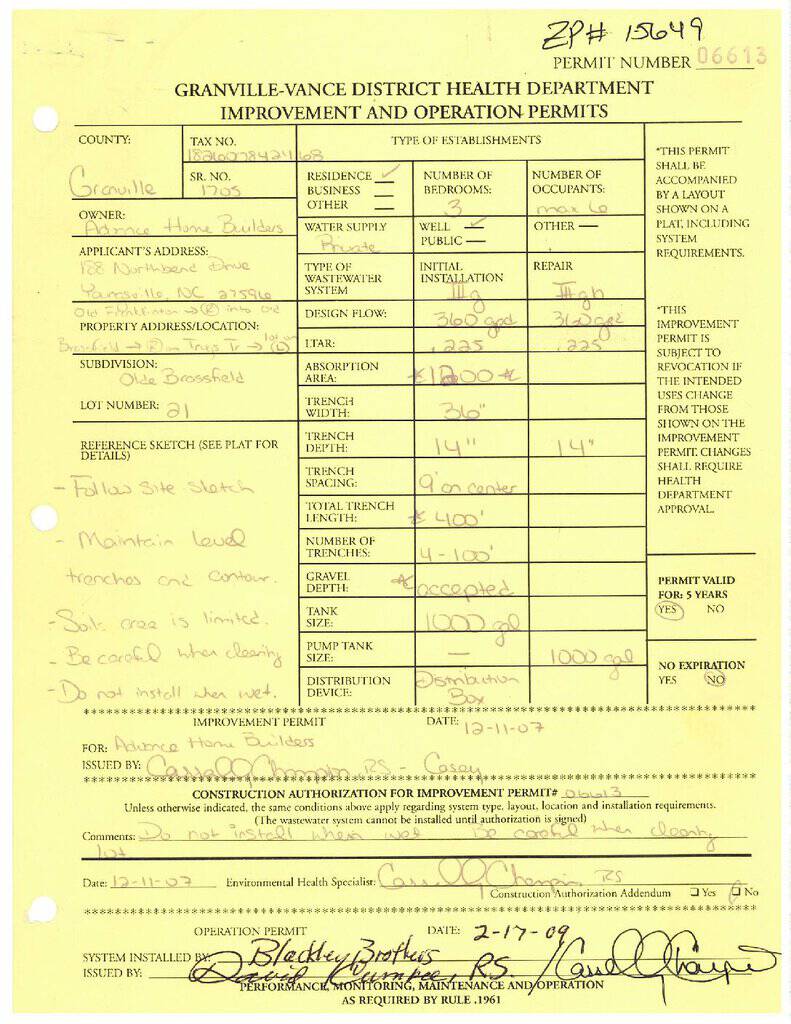 ZP# 15649
PERMIT NUMBER 06613
GRANVILLE-VANCE DISTRICT HEALTH DEPARTMENT
IMPROVEMENT AND OPERATION PERMITS
COUNTY:
Granville
TAX NO.
SR. NO.
1705
OWNER:
Advance Home Builders
APPLICANT'S ADDRESS:
188 Northbend Drive
NC 27596
PROPERTY ADDRESS/LOCATION:
SUBDIVISION:
Olde Brassfield
LOT NUMBER: 21
TYPE OF ESTABLISHMENTS
RESIDENCE ✓
BUSINESS
OTHER
NUMBER OF
BEDROOMS:
3
NUMBER OF
OCCUPANTS:
max 6
WATER SUPPLY
Private
WELL ✓
PUBLIC
OTHER
TYPE OF
WASTEWATER
SYSTEM
INITIAL
INSTALLATION
III g
REPAIR
III gh
DESIGN FLOW: 360 gpd 360 gpd
LTAR: .225 .225
ABSORPTION
AREA: *1200*
TRENCH
WIDTH: 36"
TRENCH
DEPTH: 14" 14"
TRENCH
SPACING: 9' on center
TOTAL TRENCH
LENGTH: * 400'
NUMBER OF
TRENCHES: 4-100'
GRAVEL
DEPTH: * accepted
TANK
SIZE: 1000 gal
PUMP TANK
SIZE: — 1000 gal
DISTRIBUTION
DEVICE: Distribution
Box
REFERENCE SKETCH (SEE PLAT FOR
DETAILS)
- Follow Site Sketch
- Maintain level
trenches and contour.
- Soils area is limited.
- Be careful when clearing
- Do not install when wet.
*THIS PERMIT
SHALL BE
ACCOMPANIED
BY A LAYOUT
SHOWN ON A
PLAT, INCLUDING
SYSTEM
REQUIREMENTS.
*THIS
IMPROVEMENT
PERMIT IS
SUBJECT TO
REVOCATION IF
THE INTENDED
USES CHANGE
FROM THOSE
SHOWN ON THE
IMPROVEMENT
PERMIT. CHANGES
SHALL REQUIRE
HEALTH
DEPARTMENT
APPROVAL.
PERMIT VALID
FOR: 5 YEARS
YES NO
NO EXPIRATION
YES NO
IMPROVEMENT PERMIT DATE: 12-11-07
FOR: Advance Home Builders
ISSUED BY: RS - Casey
CONSTRUCTION AUTHORIZATION FOR IMPROVEMENT PERMIT# 06613
Unless otherwise indicated, the same conditions above apply regarding system type, layout, location and installation requirements.
(The wastewater system cannot be installed until authorization is signed)
Comments: Do not install when wet Be careful when clearing
lot
Date: 12-11-07 Environmental Health Specialist: RS
Construction Authorization Addendum Yes No
OPERATION PERMIT DATE: 2-17-09
SYSTEM INSTALLED BY: Blackley Brothers
ISSUED BY: David R.S.
PERFORMANCE, MONITORING, MAINTENANCE AND OPERATION
AS REQUIRED BY RULE .1961